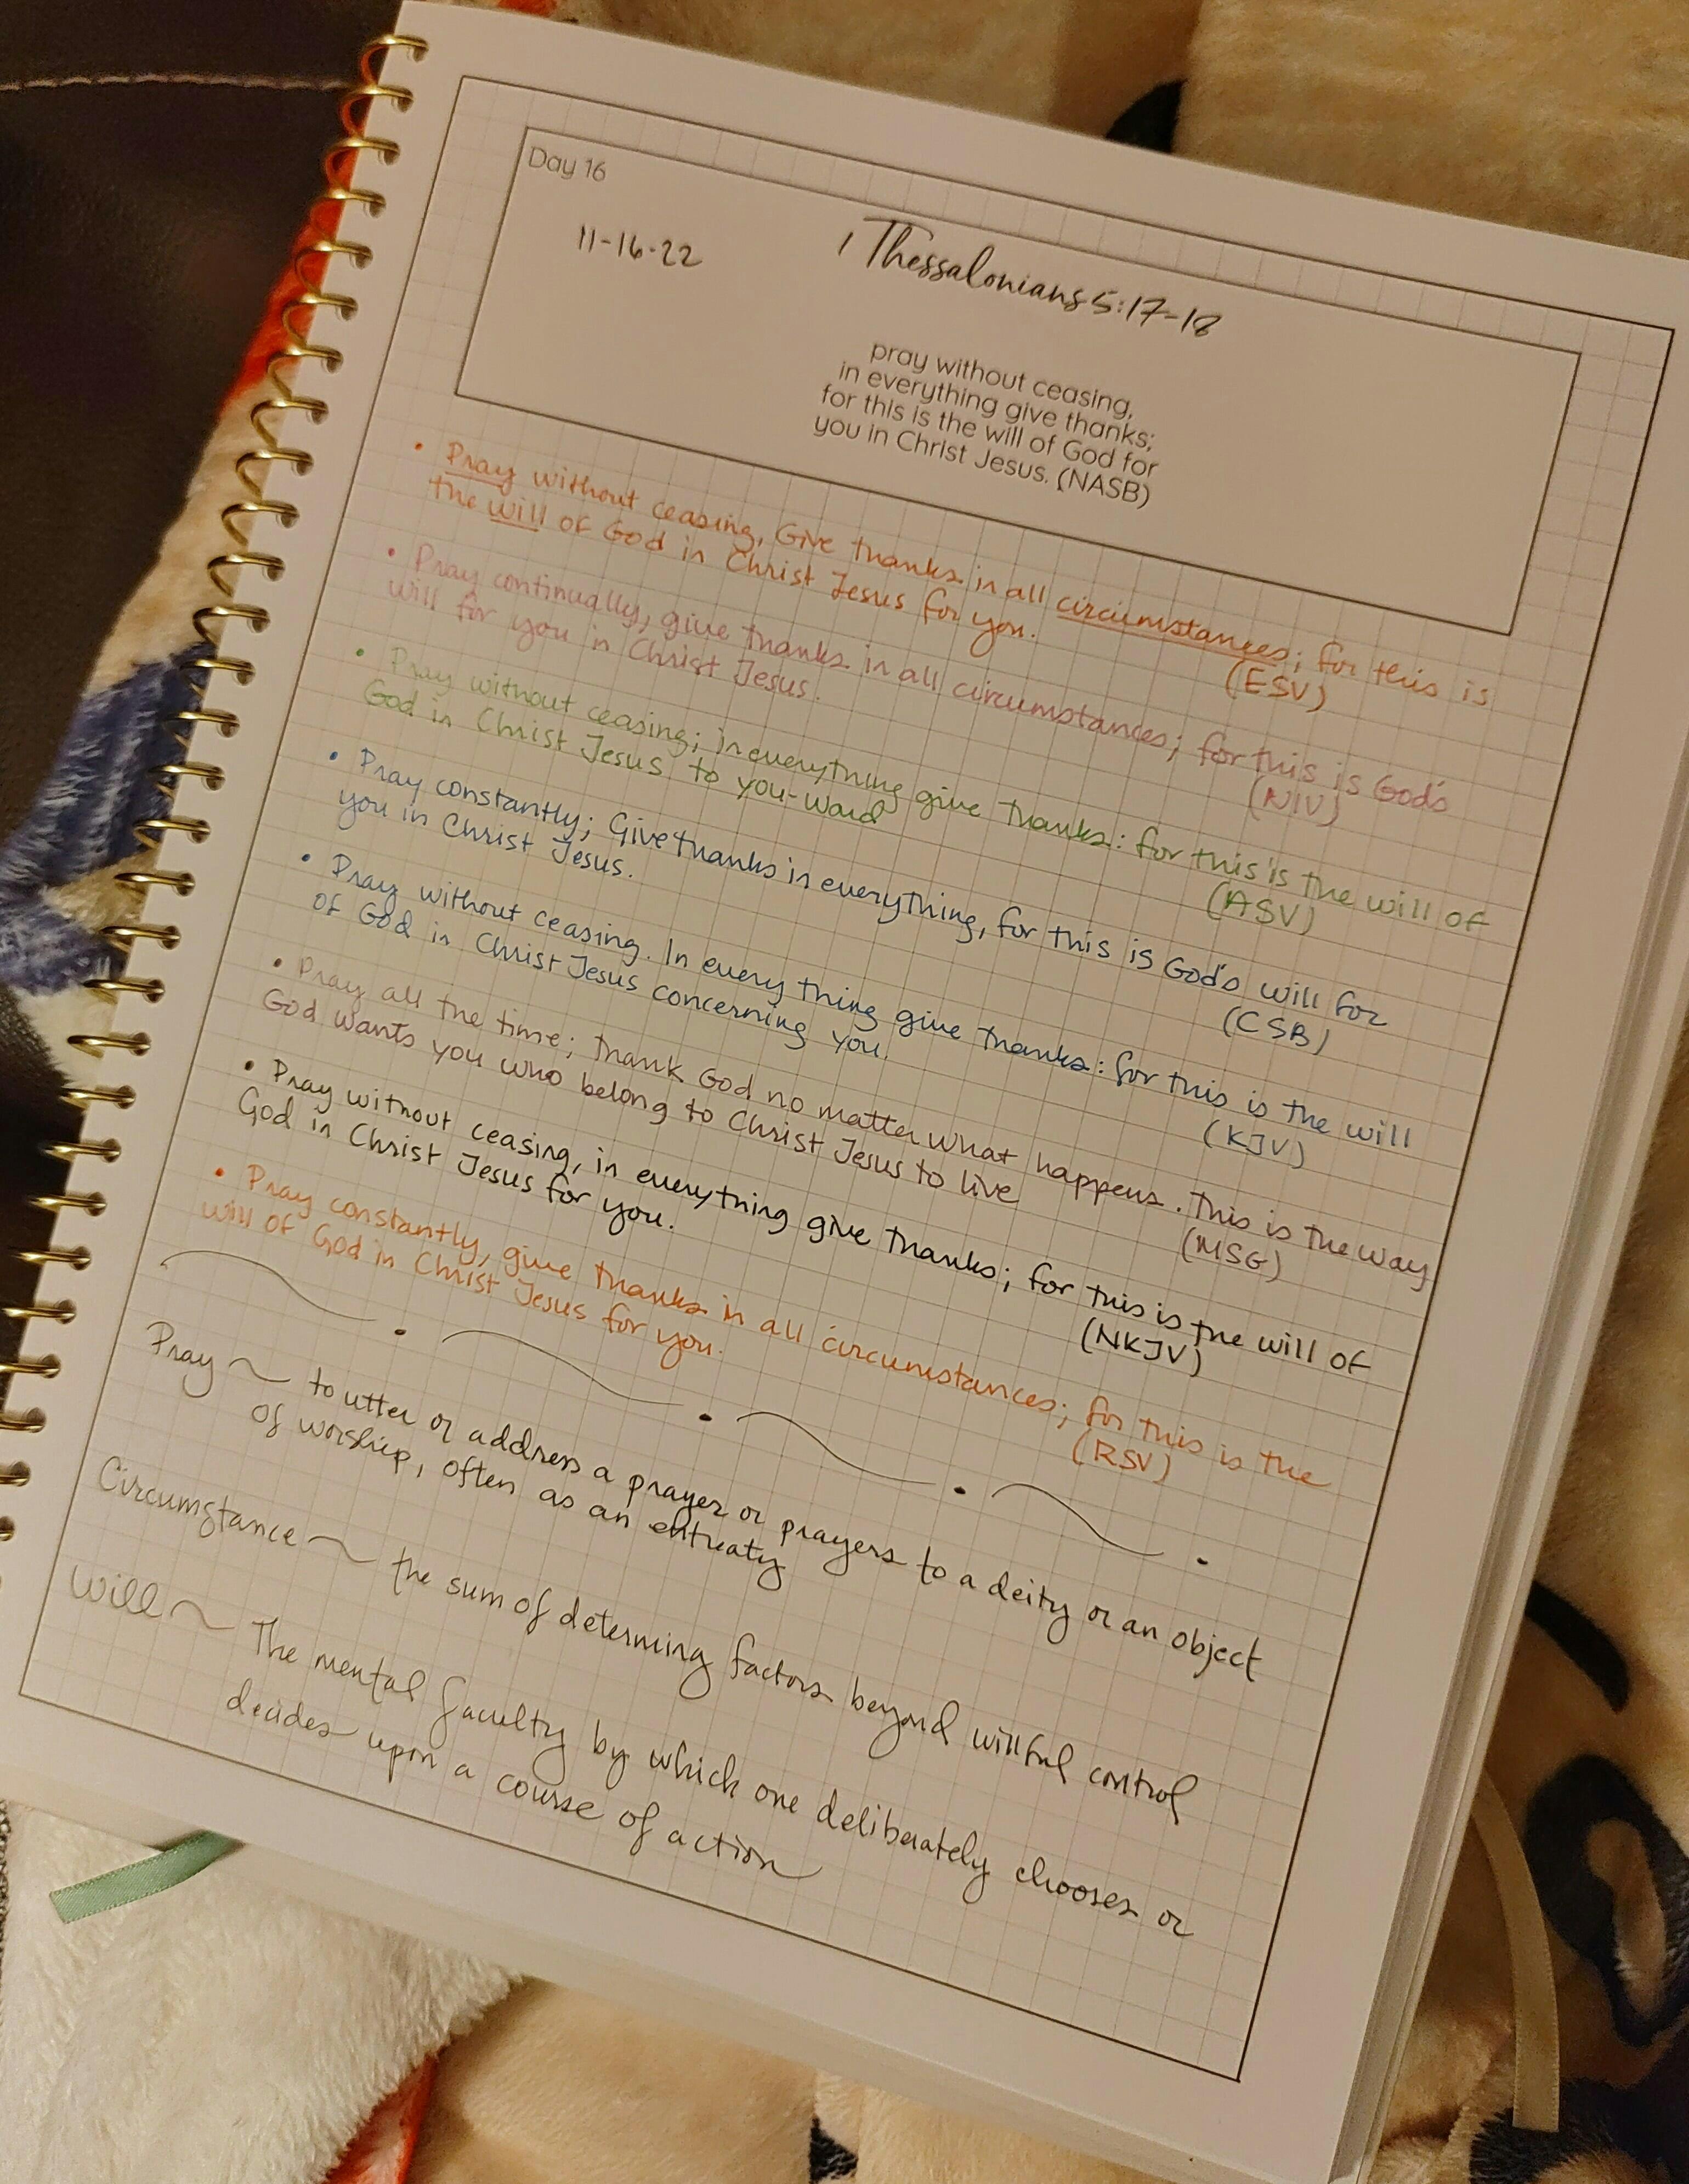 Day 16
11-16-22
1 Thessalonians 5:17-18
pray without ceasing,
in everything give thanks;
for this is the will of God for
you in Christ Jesus. (NASB)
• Pray without ceasing, Give thanks in all circumstances; for this is
the will of God in Christ Jesus for you. (ESV)
• Pray continually, give thanks in all circumstances; for this is God's
will for you in Christ Jesus. (NIV)
• Pray without ceasing; in everything give thanks: for this is the will of
God in Christ Jesus to you-ward (ASV)
• Pray constantly; Give thanks in everything, for this is God's will for
you in Christ Jesus. (CSB)
• Pray without ceasing. In every thing give thanks: for this is the will
of God in Christ Jesus concerning you. (KJV)
• Pray all the time; thank God no matter what happens. This is the way
God wants you who belong to Christ Jesus to live (MSG)
• Pray without ceasing, in everything give thanks; for this is the will of
God in Christ Jesus for you. (NKJV)
• Pray constantly, give thanks in all circumstances; for this is the
will of God in Christ Jesus for you. (RSV)
Pray ~ to utter or address a prayer or prayers to a deity or an object
of worship, often as an entreaty
Circumstance ~ the sum of determing factors beyond willful control
Will ~ The mental faculty by which one deliberately chooses or
decides upon a course of action